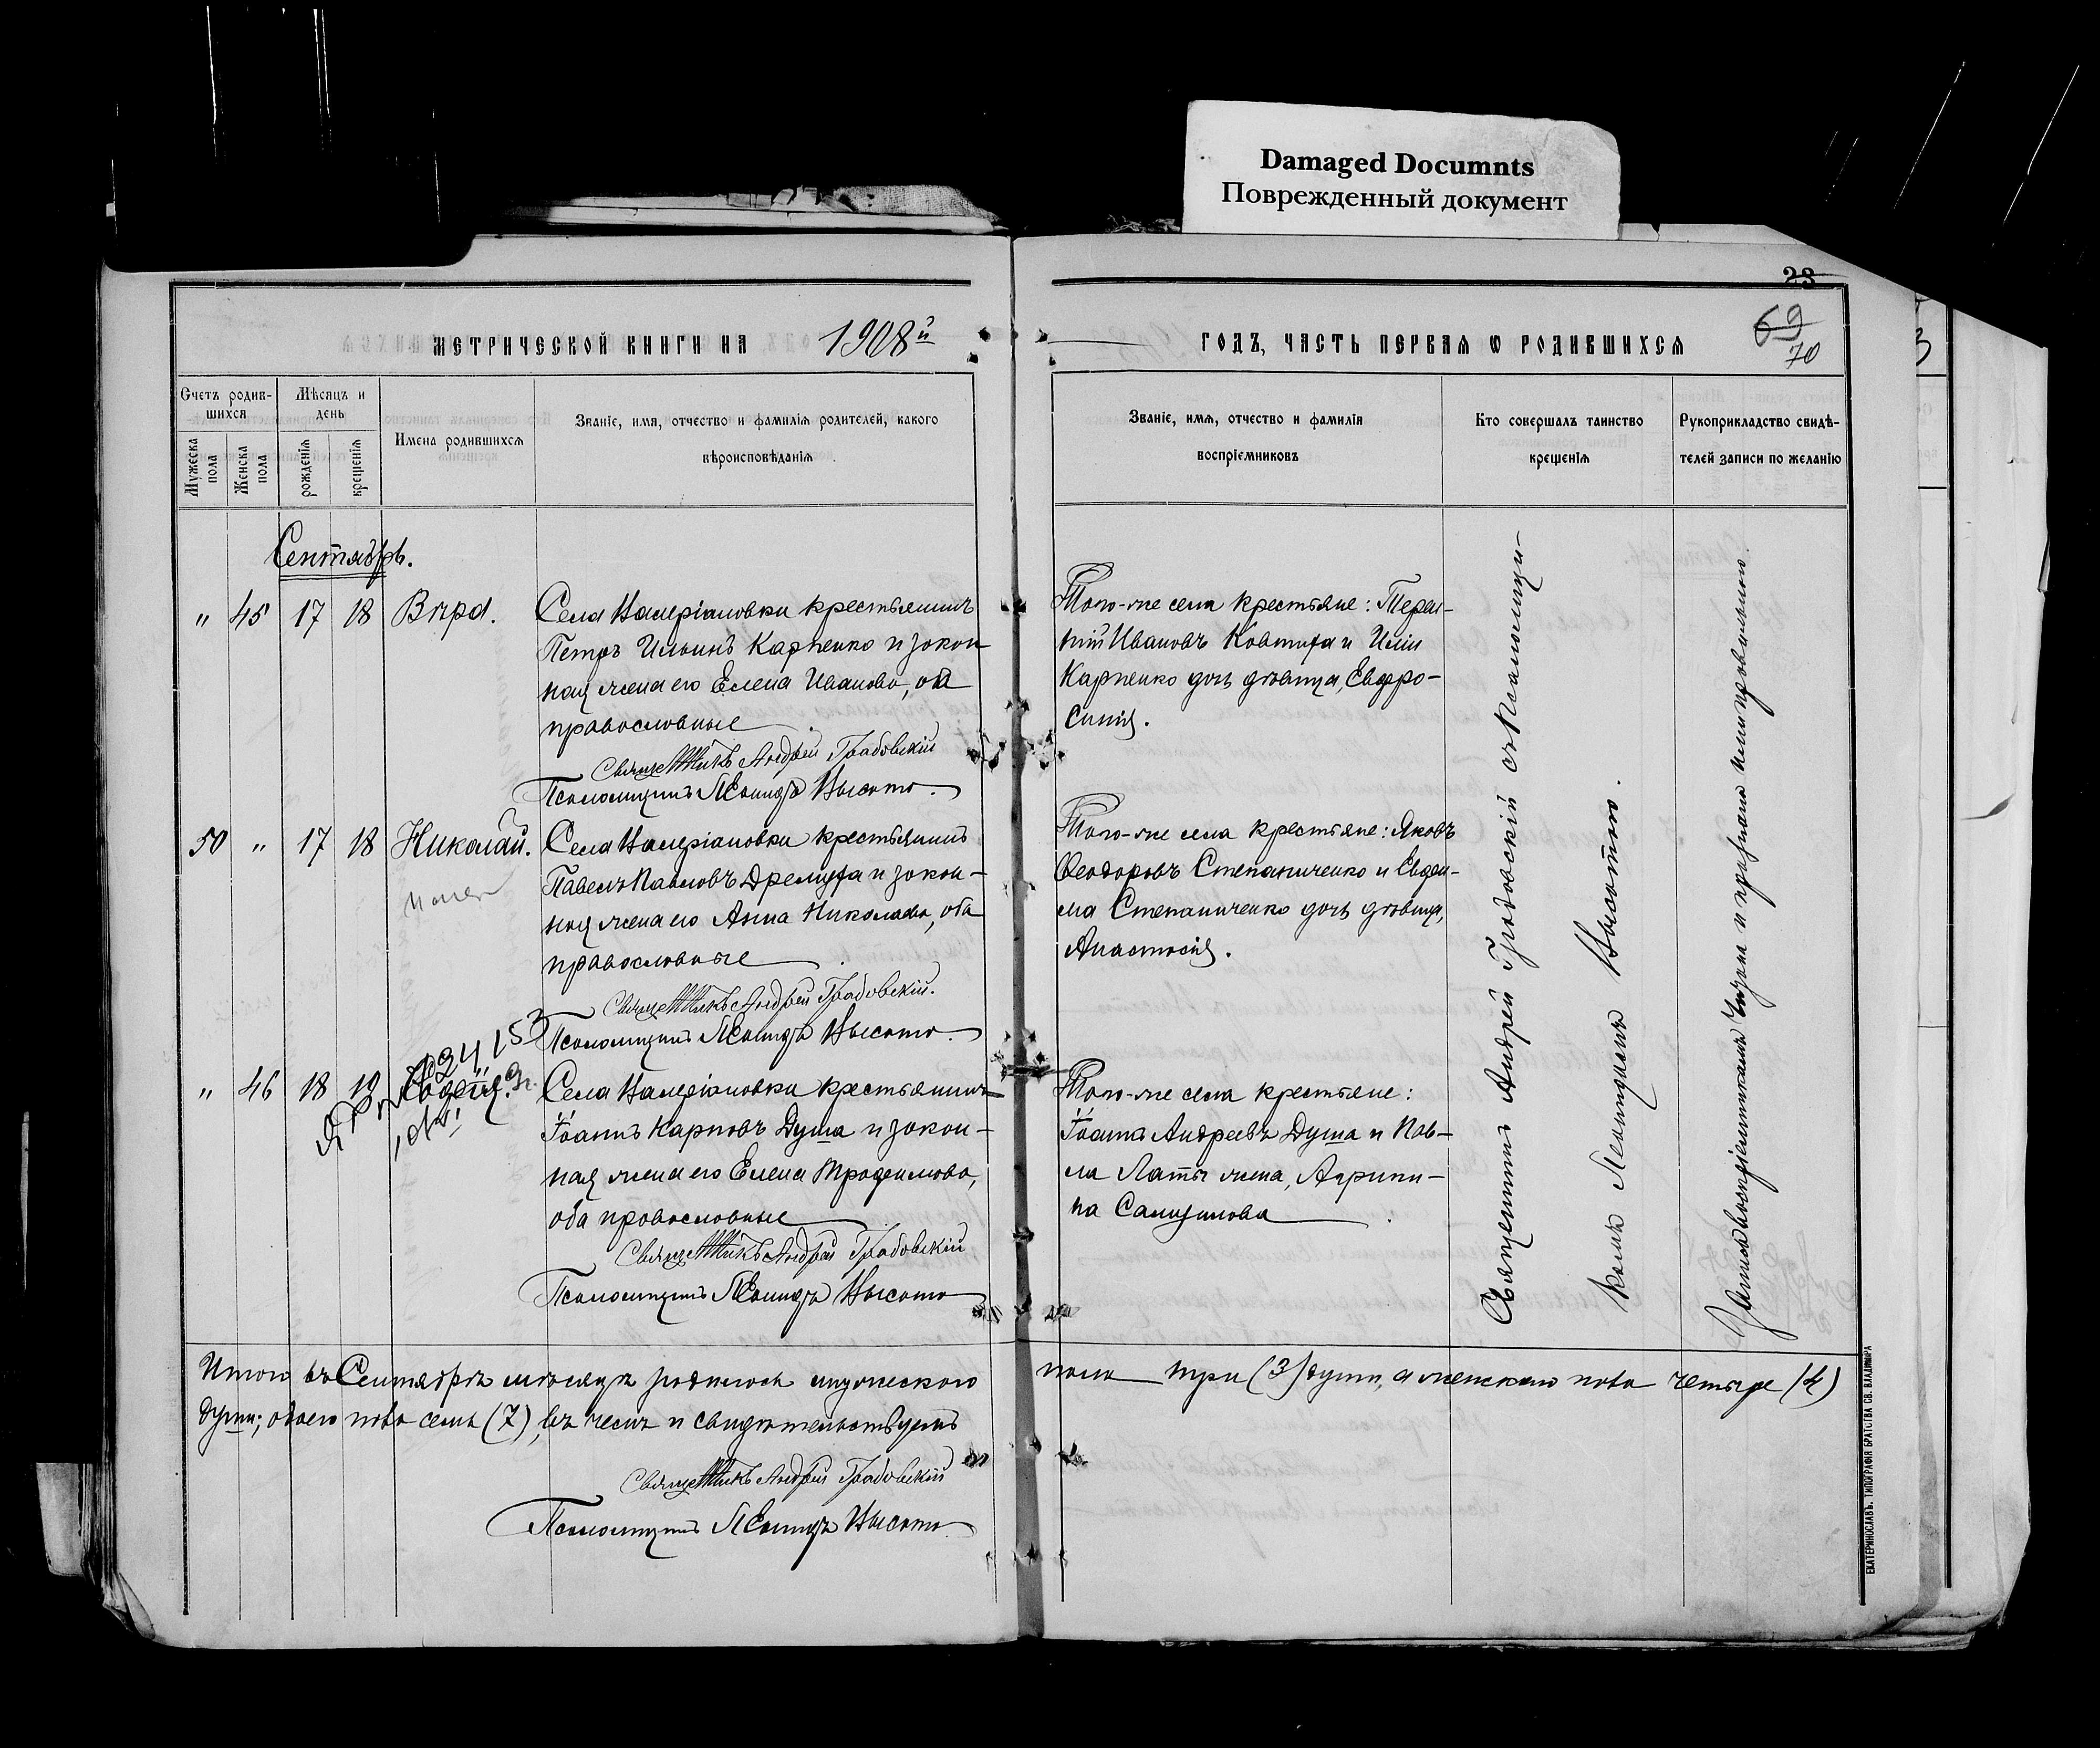 Damaged Documnts
Поврежденный документ
23
МЕТРИЧЕСКОЙ КНИГИ НА 1908й
ГОДЪ, ЧАСТЬ ПЕРВАЯ Ѡ РОДИВШИХСЯ
69
70
Счетъ родив-
шихся
Мужеска пола
Женска пола
Мѣсяцъ и
день
рожденія
крещенія
Имена родившихся
Званіе, имя, отчество и фамилія родителей, какого
вѣроисповѣданія
Званіе, имя, отчество и фамилія
воспріемниковъ
Кто совершалъ таинство
крещенія
Рукоприкладство свидѣ-
телей записи по желанію
Сентябрь.
" 45 17 18 Вѣра.
Села Валеріановки крестьянинъ
Петръ Ильинъ Карпенко и закон
ная жена его Елена Иванова, оба
православные
Священникъ Андрей Грабовскій
Псаломщикъ Леонидъ Высота.
Того-же села крестьяне: Терен-
тій Ивановъ Ковтуха и Иліи
Карпенко дочь дѣвица, Евфро-
синія.
50 " 17 18 Николай.
Села Валеріановки крестьянинъ
Павелъ Павловъ Дремуха и закон-
ная жена его Анна Николаева, оба
православные
Священникъ Андрей Грабовскій.
Псаломщикъ Леонидъ Высота.
Того-же села крестьяне: Яковъ
Феодоровъ Степаниченко и
Степаниченко дочь дѣвица,
Анастасія.
" 46 18 19
Села Валеріановки крестьянинъ
Іоаннъ Карповъ Душа и закон-
ная жена его Елена Трофимова,
оба православные
Священникъ Андрей Грабовскій
Псаломщикъ Леонидъ Высота
Того-же села крестьяне:
Іоаннъ Андреевъ Душа и Пав-
ла Латы жена, Агрипи-
на Самуилова
Священникъ Андрей Грабовскій съ Псаломщи-
комъ Леонидомъ Высотою.
Итого въ Сентябрѣ мѣсяцѣ родилось мужескаго пола три (3) души, а женскаго пола четыре (4)
души; обоего пола семь (7), въ чемъ и свидѣтельствуемъ
Священникъ Андрей Грабовскій
Псаломщикъ Леонидъ Высота
ЕКАТЕРИНОСЛАВЪ. ТИПОГРАФІЯ БРАТСТВА СВ. ВЛАДИМІРА